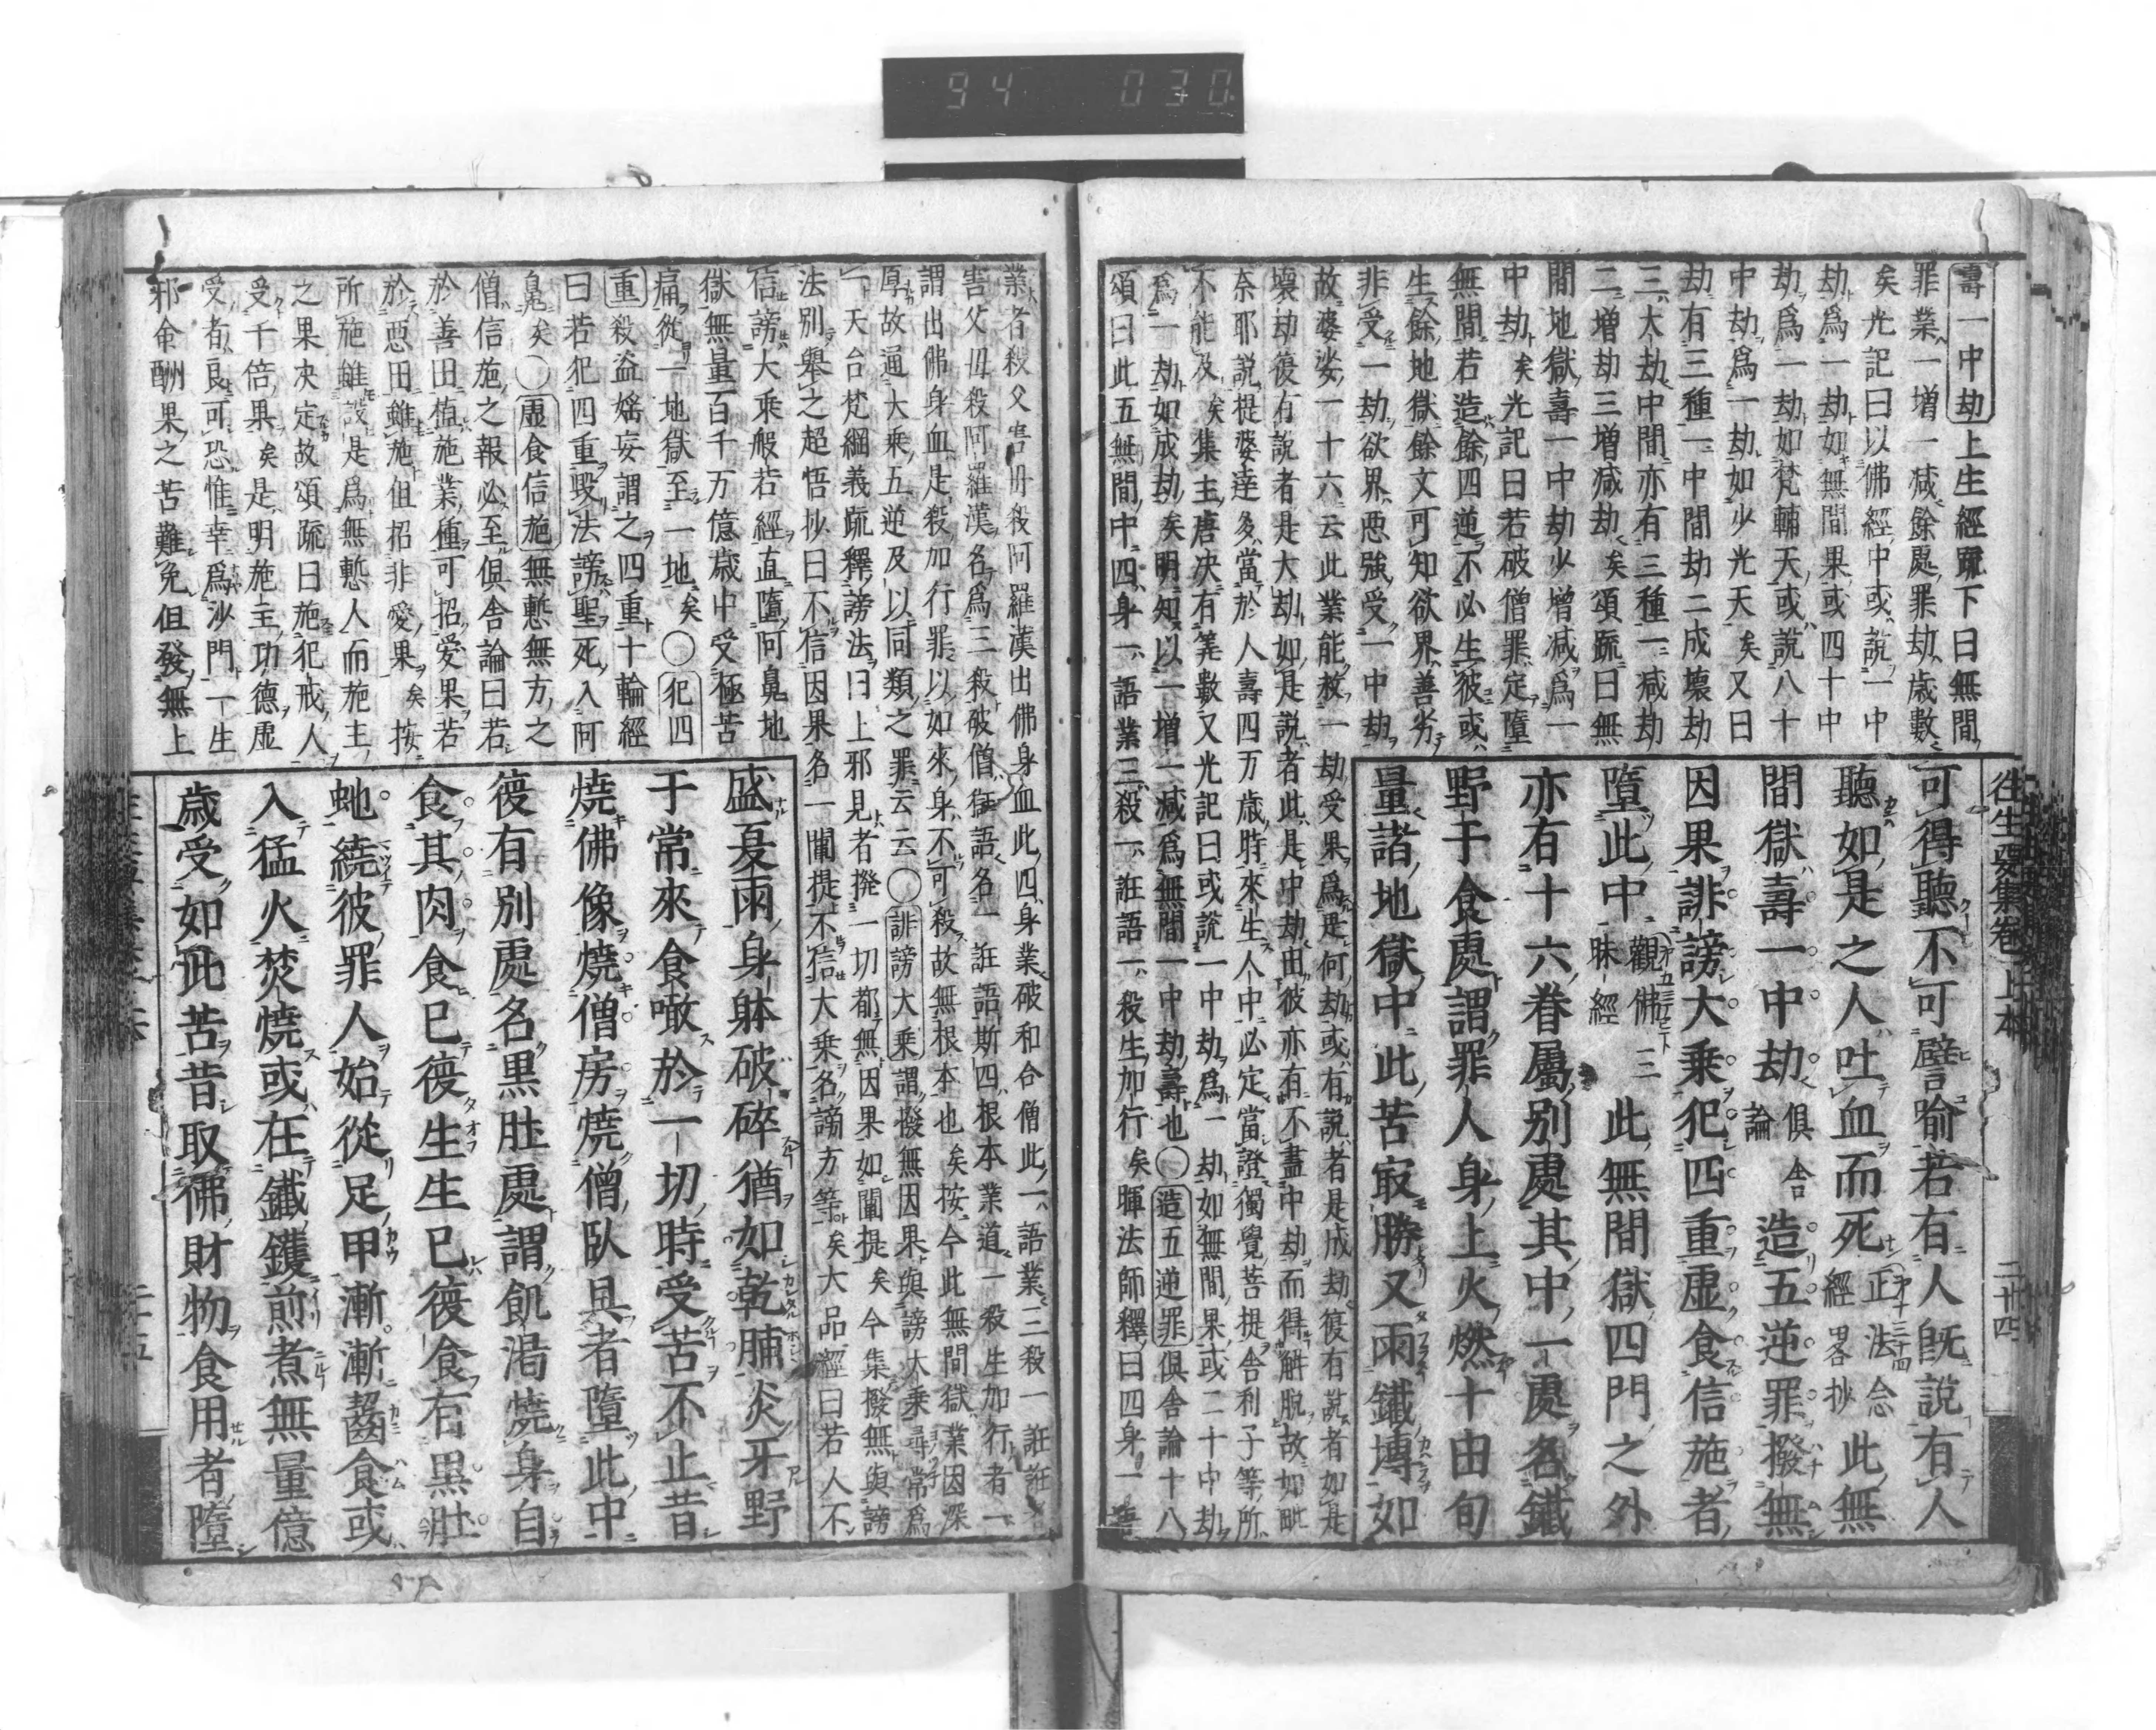 94 030
往生要集卷上本 二十四
壽一中劫上生經疏下曰無間
罪業一增一減餘處罪劫歲數
矣光記曰以佛經中或說一中
劫爲一劫如無間果或四十中
劫爲一劫如梵輔天或說八十
中劫爲一劫如少光天矣又曰
劫有三種一中間劫二成壞劫
三大劫中間亦有三種一減劫
二增劫三增減劫矣頌疏曰無
間地獄壽一中劫少增減爲一
中劫矣光記曰若破僧罪定墮
無間若造餘四逆不必生彼或
生餘地獄餘文可知欲界善劣
非受一劫欲界惡強受一中劫
故婆娑一十六云此業能救一劫受果爲是何劫或有說者是成劫復有說者如是
壞劫復有說者是大劫如是說者此是中劫由彼亦有不盡中劫而得解脫故如毗
奈耶說提婆達多當於人壽四万歲時來生人中必定當證獨覺菩提舍利子等所
不能及矣集主唐決有筭數又光記曰或說一中劫爲一劫如無間果或二十中劫
爲一劫如成劫矣明知以一增一減爲無間一中劫壽也○造五逆罪俱舍論十八
頌曰此五無間中四身一語業三殺一誑語一殺生加行矣暉法師釋曰四身一語
可得聽不可譬喻若有人既說有人
聽如是之人吐血而死正法念經畧抄此無
間獄壽一中劫俱舍論造五逆罪撥無
因果誹謗大乘犯四重虛食信施者
墮此中觀佛三昧經此無間獄四門之外
亦有十六眷屬別處其中一處名鐵
野干食處謂罪人身上火燃十由旬
量諸地獄中此苦㝡勝又雨鐵塼如
業者殺父害母殺阿羅漢出佛身血此四身業破和合僧此一語業三殺一誑誑
害父母殺阿羅漢名爲三殺破僧誑語名一誑語斯四根本業道一殺生加行者一
謂出佛身血是殺加行罪以如來身不可殺故無根本也矣按今此無間獄業因深
厚故通大乘五逆及以同類之罪云云○誹謗大乘謂撥無因果與謗大乘尋常爲
一天台梵網義疏釋謗法曰上邪見者撥一切都無因果如闡提矣今集撥無與謗
法別舉之超悟抄曰不信因果名一闡提不信大乘名謗方等矣大品經曰若人不
信謗大乘般若經直墮阿鼻地
獄無量百千万億歲中受極苦
痛從一地獄至一地矣○犯四
重殺盜婬妄謂之四重十輪經
曰若犯四重毀法謗聖死入阿
鼻矣○虛食信施無慙無方之
僧信施之報必至俱舍論曰若
於善田植施業種可招愛果若
於惡田雖施但招非愛果矣按
所施雖設是爲無慙人而施主
之果決定故頌疏曰施犯戒人
受千倍果矣是明施主功德虛
受者良可恐惟幸爲沙門一生
邪命酬果之苦難免但發無上
盛夏雨身躰破碎猶如乾脯炎牙野
干常來食噉於一切時受苦不止昔
燒佛像燒僧房燒僧臥具者墮此中
復有別處名黑肚處謂飢渴燒身自
食其肉食已復生生已復食有黑肚
虵繞彼罪人始從足甲漸漸齧食或
入猛火焚燒或在鐵鑊煎煮無量億
歲受如此苦昔取佛財物食用者墮